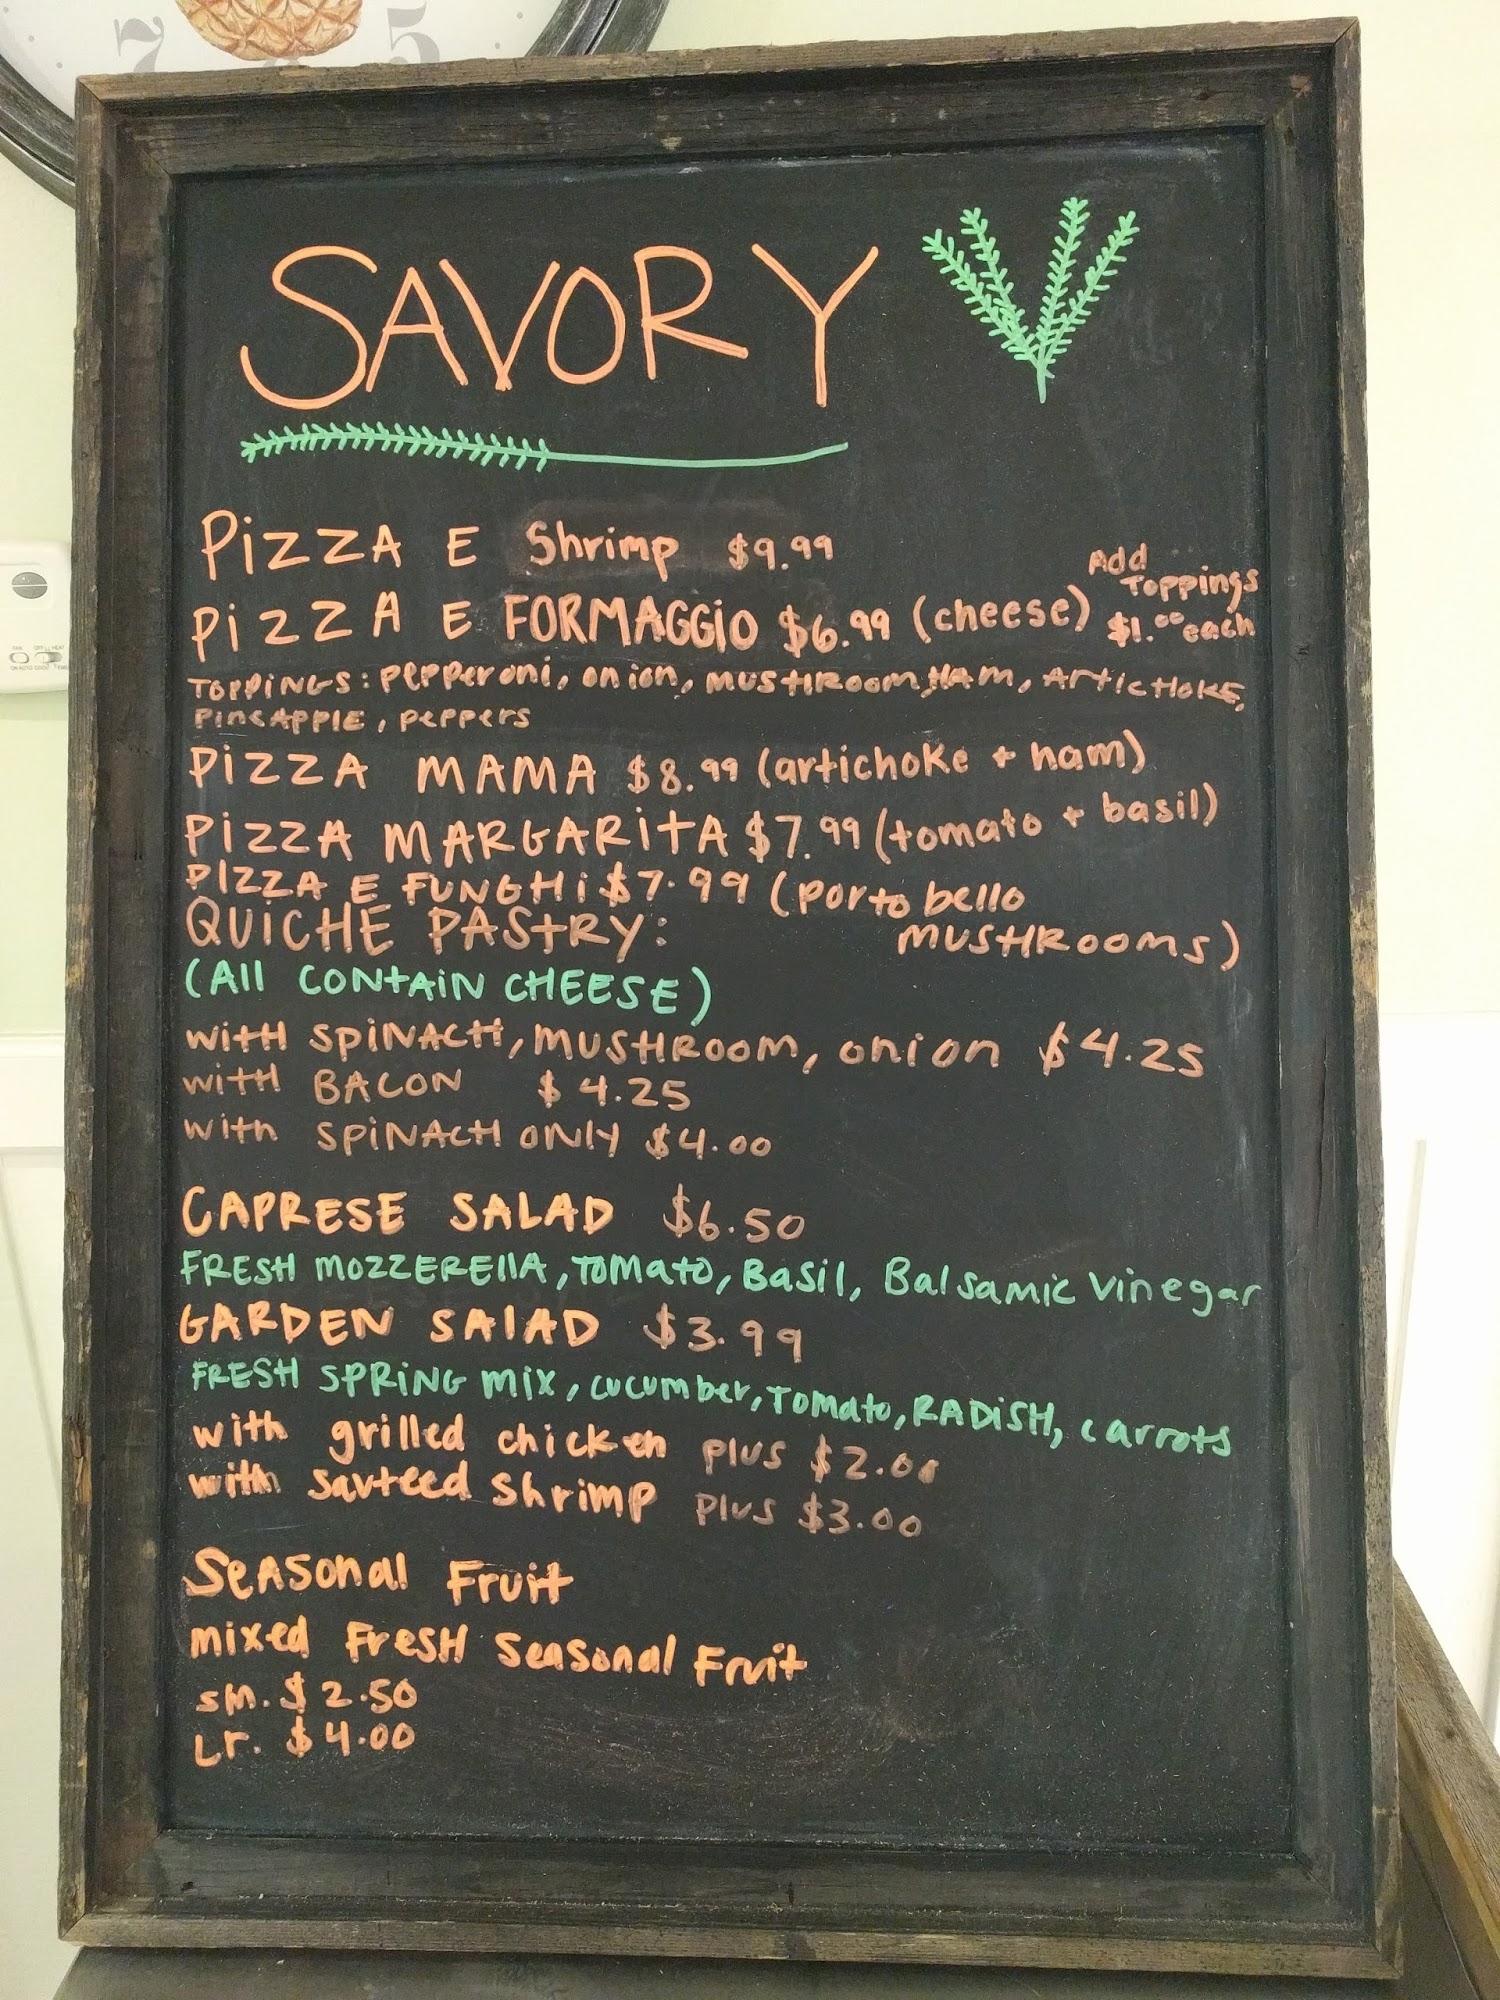 7 6 5
SAVORY
PIZZA E Shrimp $9.99
PIZZA E FORMAGGIO $6.99 (cheese)
Add
Toppings
$1.00 each
TOPPINGS: pepperoni, onion, MUSHROOM, HAM, ARTICHOKE,
PINEAPPLE, peppers
PIZZA MAMA $8.99 (artichoke + ham)
PIZZA MARGARITA $7.99 (tomato + basil)
PIZZA E FUNGHI $7.99 (porto bello
MUSHROOMS)
QUICHE PASTRY:
(All CONTAIN CHEESE)
with SPINACH, MUSHROOM, onion $4.25
with BACON $4.25
with SPINACH ONLY $4.00
CAPRESE SALAD $6.50
FRESH MOZZERELLA, TOMATO, BASIL, Balsamic Vinegar
GARDEN SALAD $3.99
FRESH SPRING MIX, cucumber, Tomato, RADISH, carrots
with grilled chicken plus $2.00
with sauteed shrimp plus $3.00
SEASONAL FRUIT
MIXED FRESH SEASONAL FRUIT
sm. $2.50
Lr. $4.00